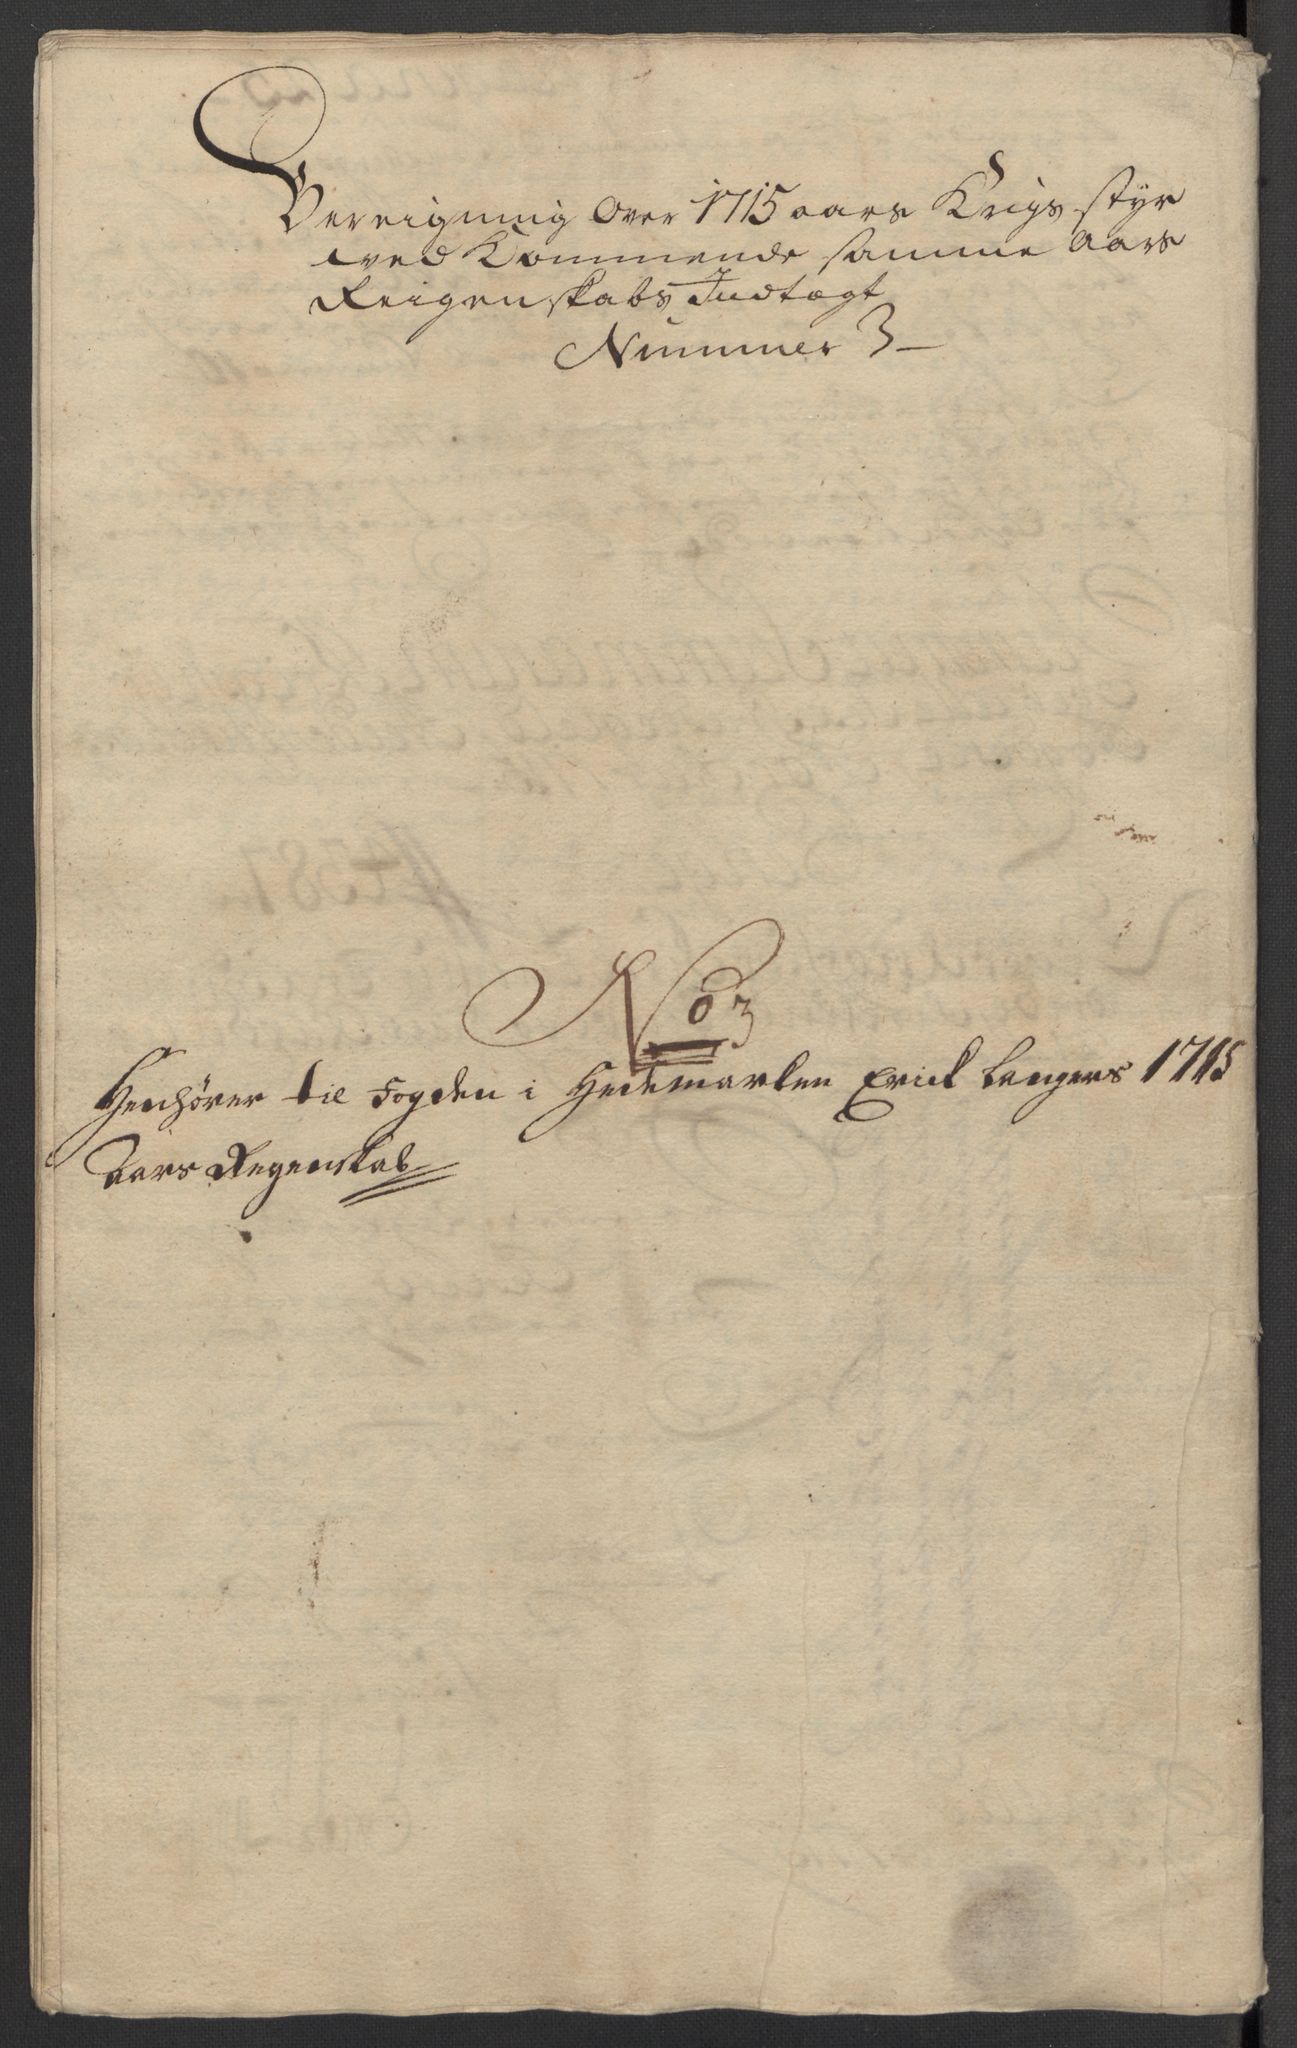 Bereigning over 1715 aars Krigs styr
wed Kommende samme Aars
Reigenskabs Indtægt
Nummer 3
No 3
Henhörer til Fogden i Hedemarken Erick Langers 1715
Aars Regenskab